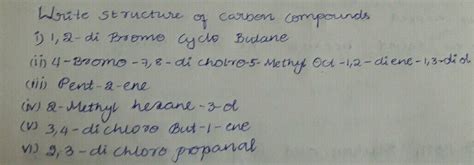 Write structure of carbon compounds
i) 1,2-di Bromo Cyclo Butane
(ii) 4-Bromo-7,8-di choloro-5-Methyl Oct-1,2-diene-1,3-diol
(iii) Pent-2-ene
(iv) 2-Methyl hexane-3-ol
(v) 3,4-dichloro But-1-ene
vi) 2,3-dichloro propanal